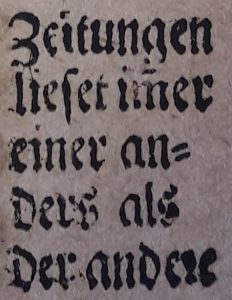 Zeitungen
lieſet im̃er
einer an⸗
ders als
der andere